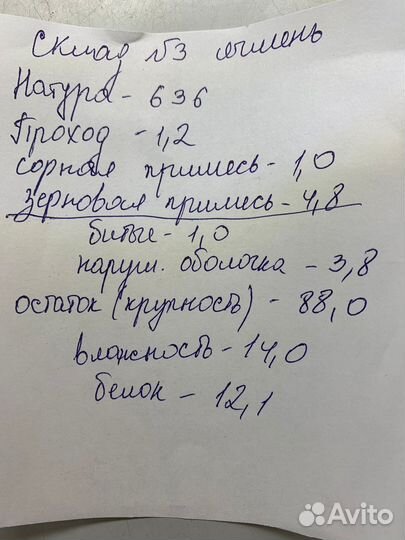 Склад №3 ячмень
Натура - 636
Проход - 1,2
сорная примесь - 1,0
зерновая примесь - 4,8
битые - 1,0
наруш. оболочка - 3,8
остаток (крупность) - 88,0
влажность - 14,0
белок - 12,1
Avito